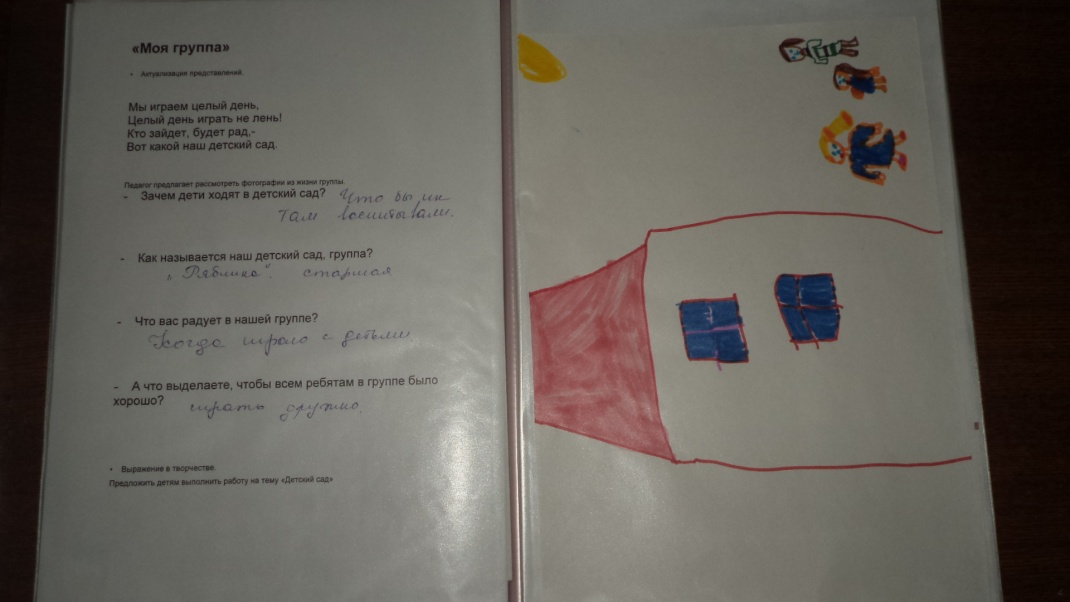 «Моя группа»
• Актуализация представлений.
Мы играем целый день,
Целый день играть не лень!
Кто зайдет, будет рад,-
Вот какой наш детский сад.
Педагог предлагает рассмотреть фотографии из жизни группы.
- Зачем дети ходят в детский сад? Что бы их
там воспитывали.
- Как называется наш детский сад, группа?
„Рябинка". старшая
- Что вас радует в нашей группе?
Когда играю с детьми
- А что выделаете, чтобы всем ребятам в группе было
хорошо? играть дружно.
• Выражение в творчестве.
Предложить детям выполнить работу на тему «Детский сад»